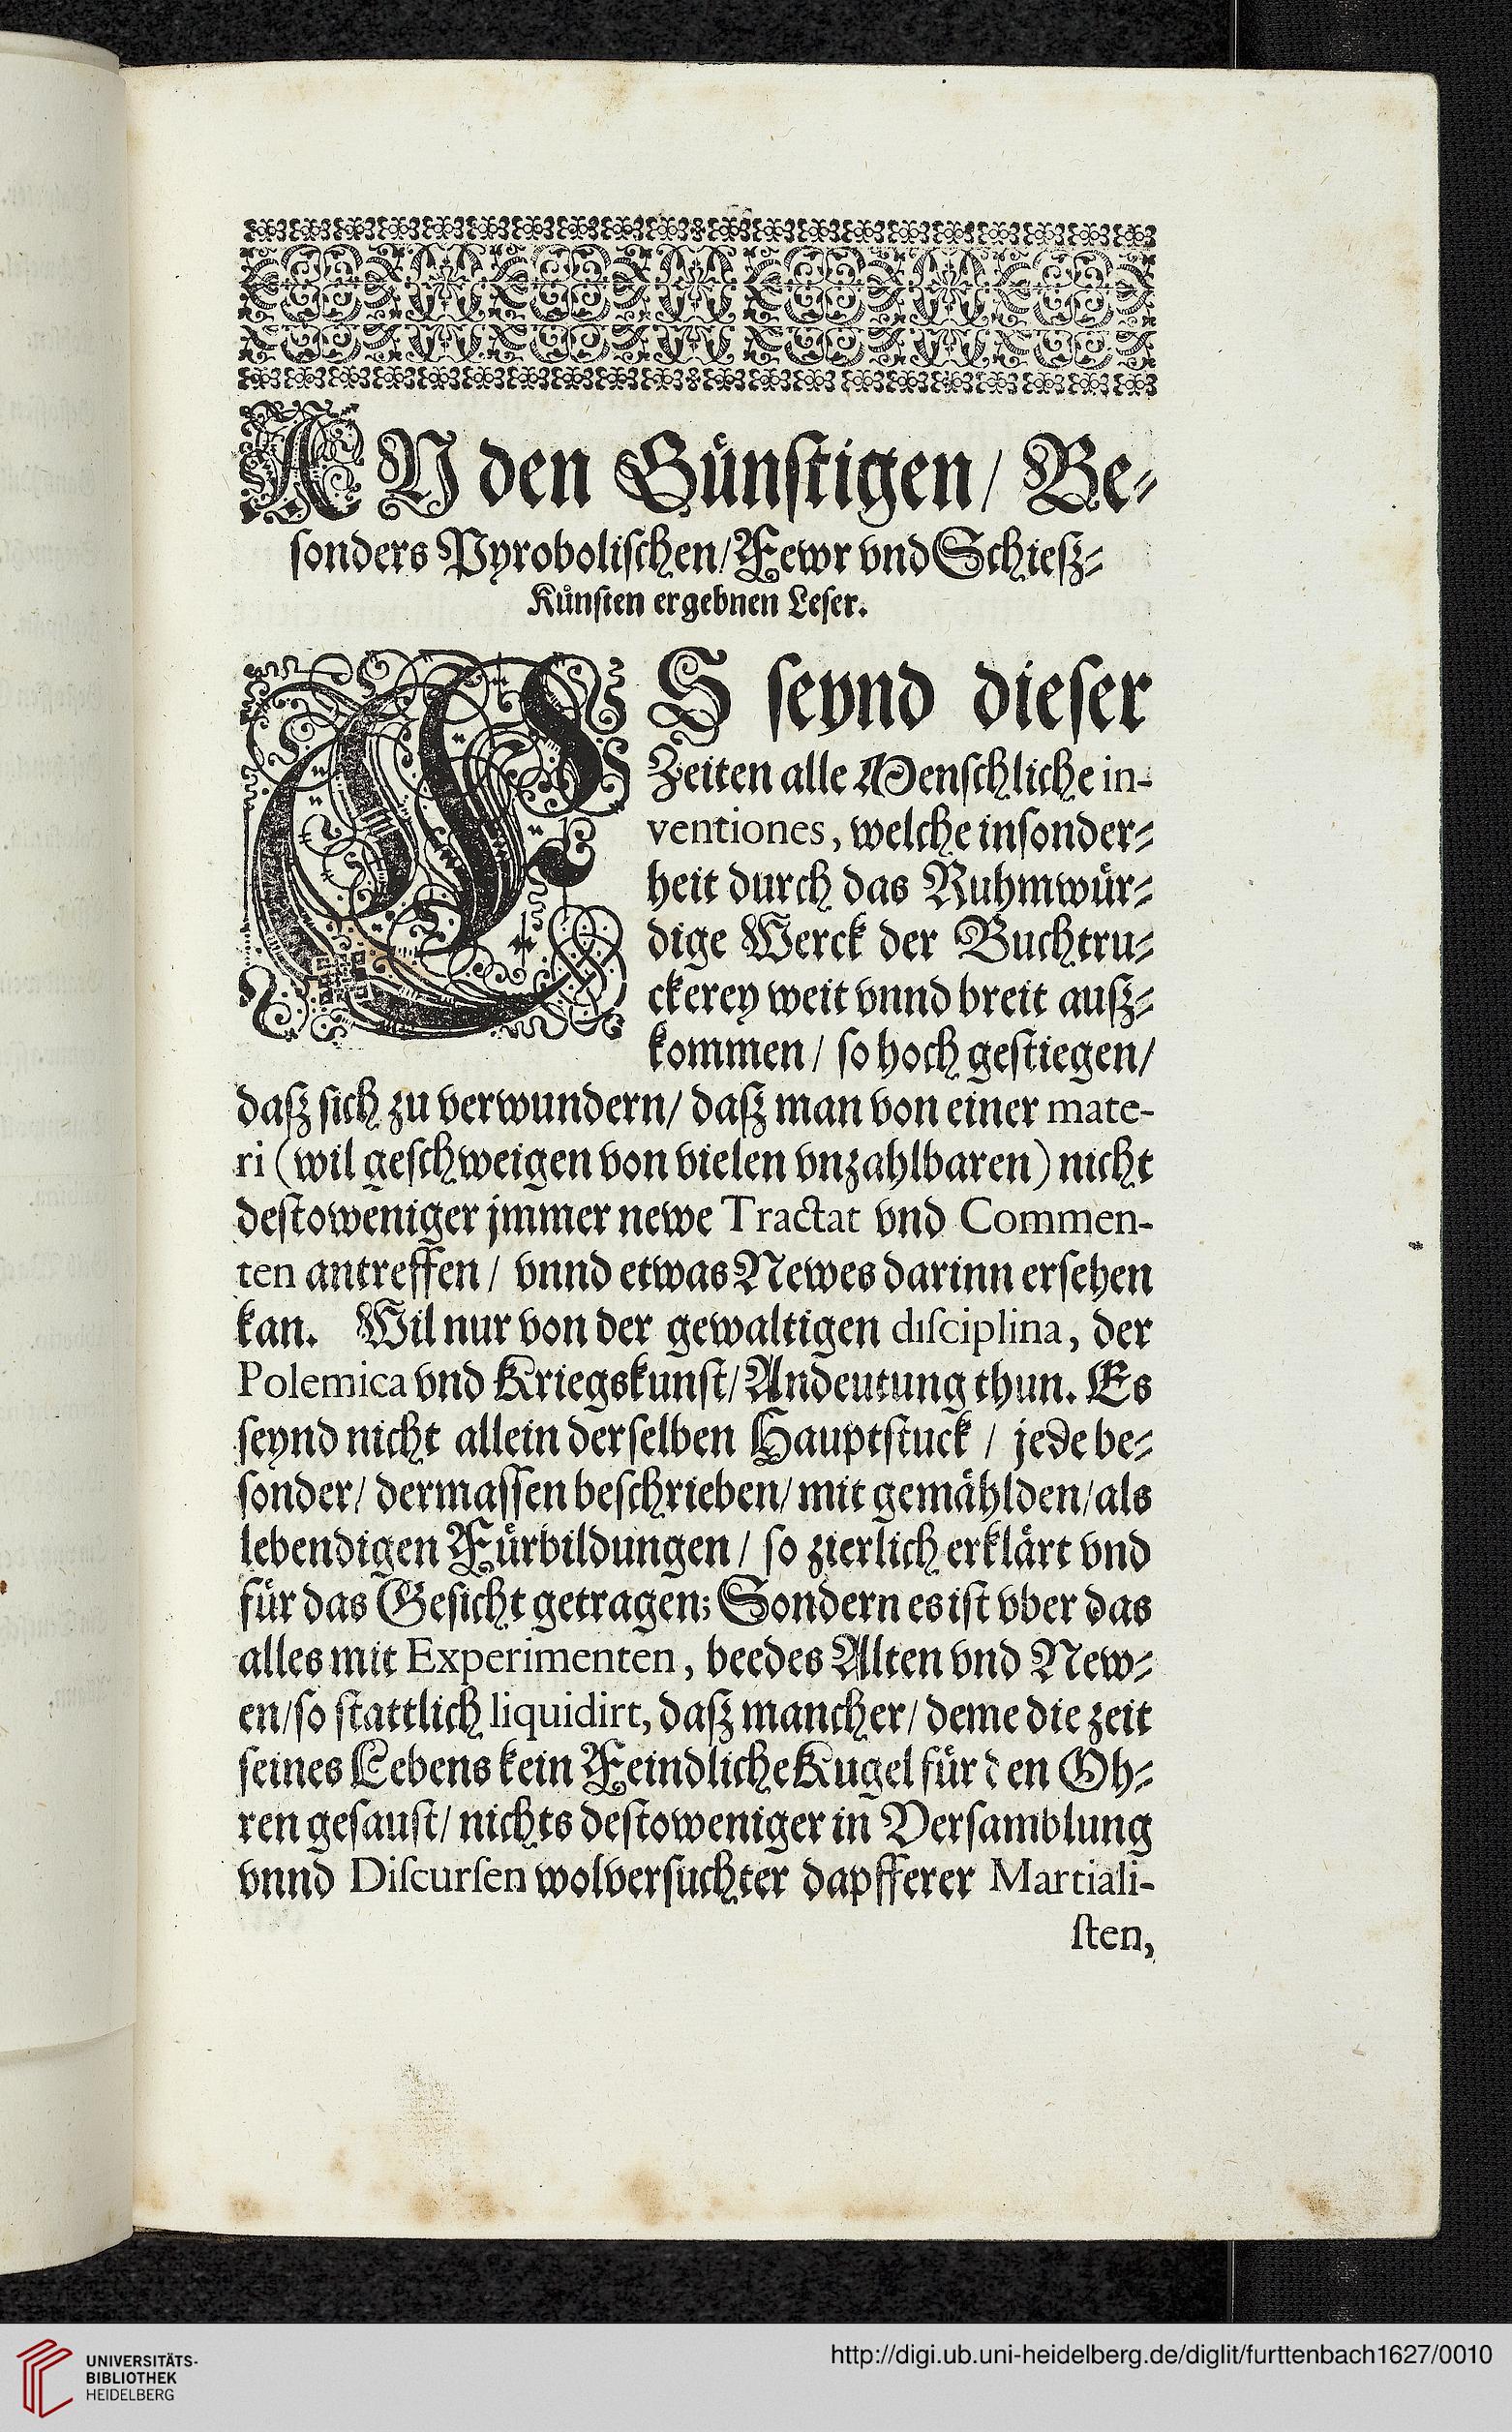 AN den Günſtigen/ Be-
ſonders Pyroboliſchen/ Fewr vnd Schieſz-
Künſten ergebnen Leſer.
ES ſeynd dieſer
Zeiten alle Menſchliche in-
ventiones, welche inſonder-
heit durch das Ruhmwür-
dige Werck der Buchtru-
ckerey weit vnnd breit auſz-
kommen/ ſo hoch geſtiegen/
daſz ſich zu verwundern/ daſz man von einer mate-
ri (wil geſchweigen von vielen vnzahlbaren) nicht
deſtoweniger jmmer newe Tractat vnd Commen-
ten antreffen/ vnnd etwas Newes darinn erſehen
kan. Wil nur von der gewaltigen diſciplina, der
Polemica vnd Kriegskunſt/ Andeutung thun. Es
ſeynd nicht allein derſelben Hauptſtuck / jede be-
ſonder/ dermaſſen beſchrieben/ mit gemählden/ als
lebendigen Fürbildungen/ ſo zierlich erklärt vnd
für das Geſicht getragen; Sondern es iſt vber das
alles mit Experimenten, beedes Alten vnd New-
en/ ſo ſtattlich liquidirt, daſz mancher/ deme die zeit
ſeines Lebens kein Feindliche Kugel für den Oh-
ren geſauſt/ nichts deſtoweniger in Verſamblung
vnnd Diſcurſen wolverſuchter dapfferer Martiali-
ſten,
UNIVERSITÄTS-
BIBLIOTHEK
HEIDELBERG
http://digi.ub.uni-heidelberg.de/diglit/furttenbach1627/0010